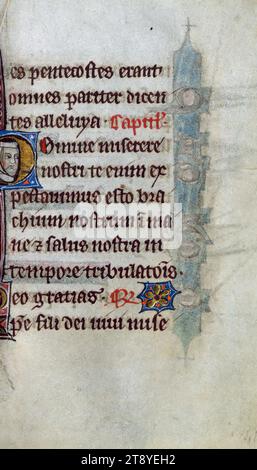 es pentecostes erant
omnes pariter dicen
tes alleluya. Capitl'.
Domine miserere
nostri te enim ex
pectauimus esto bra
chium nostrum ī ma
ne & salus nostra in
tempore tribulatōis.
Deo gratias. R̃
xp̄e fili dei uiui mise
alamy
Image ID: 2T8YEH2
www.alamy.com